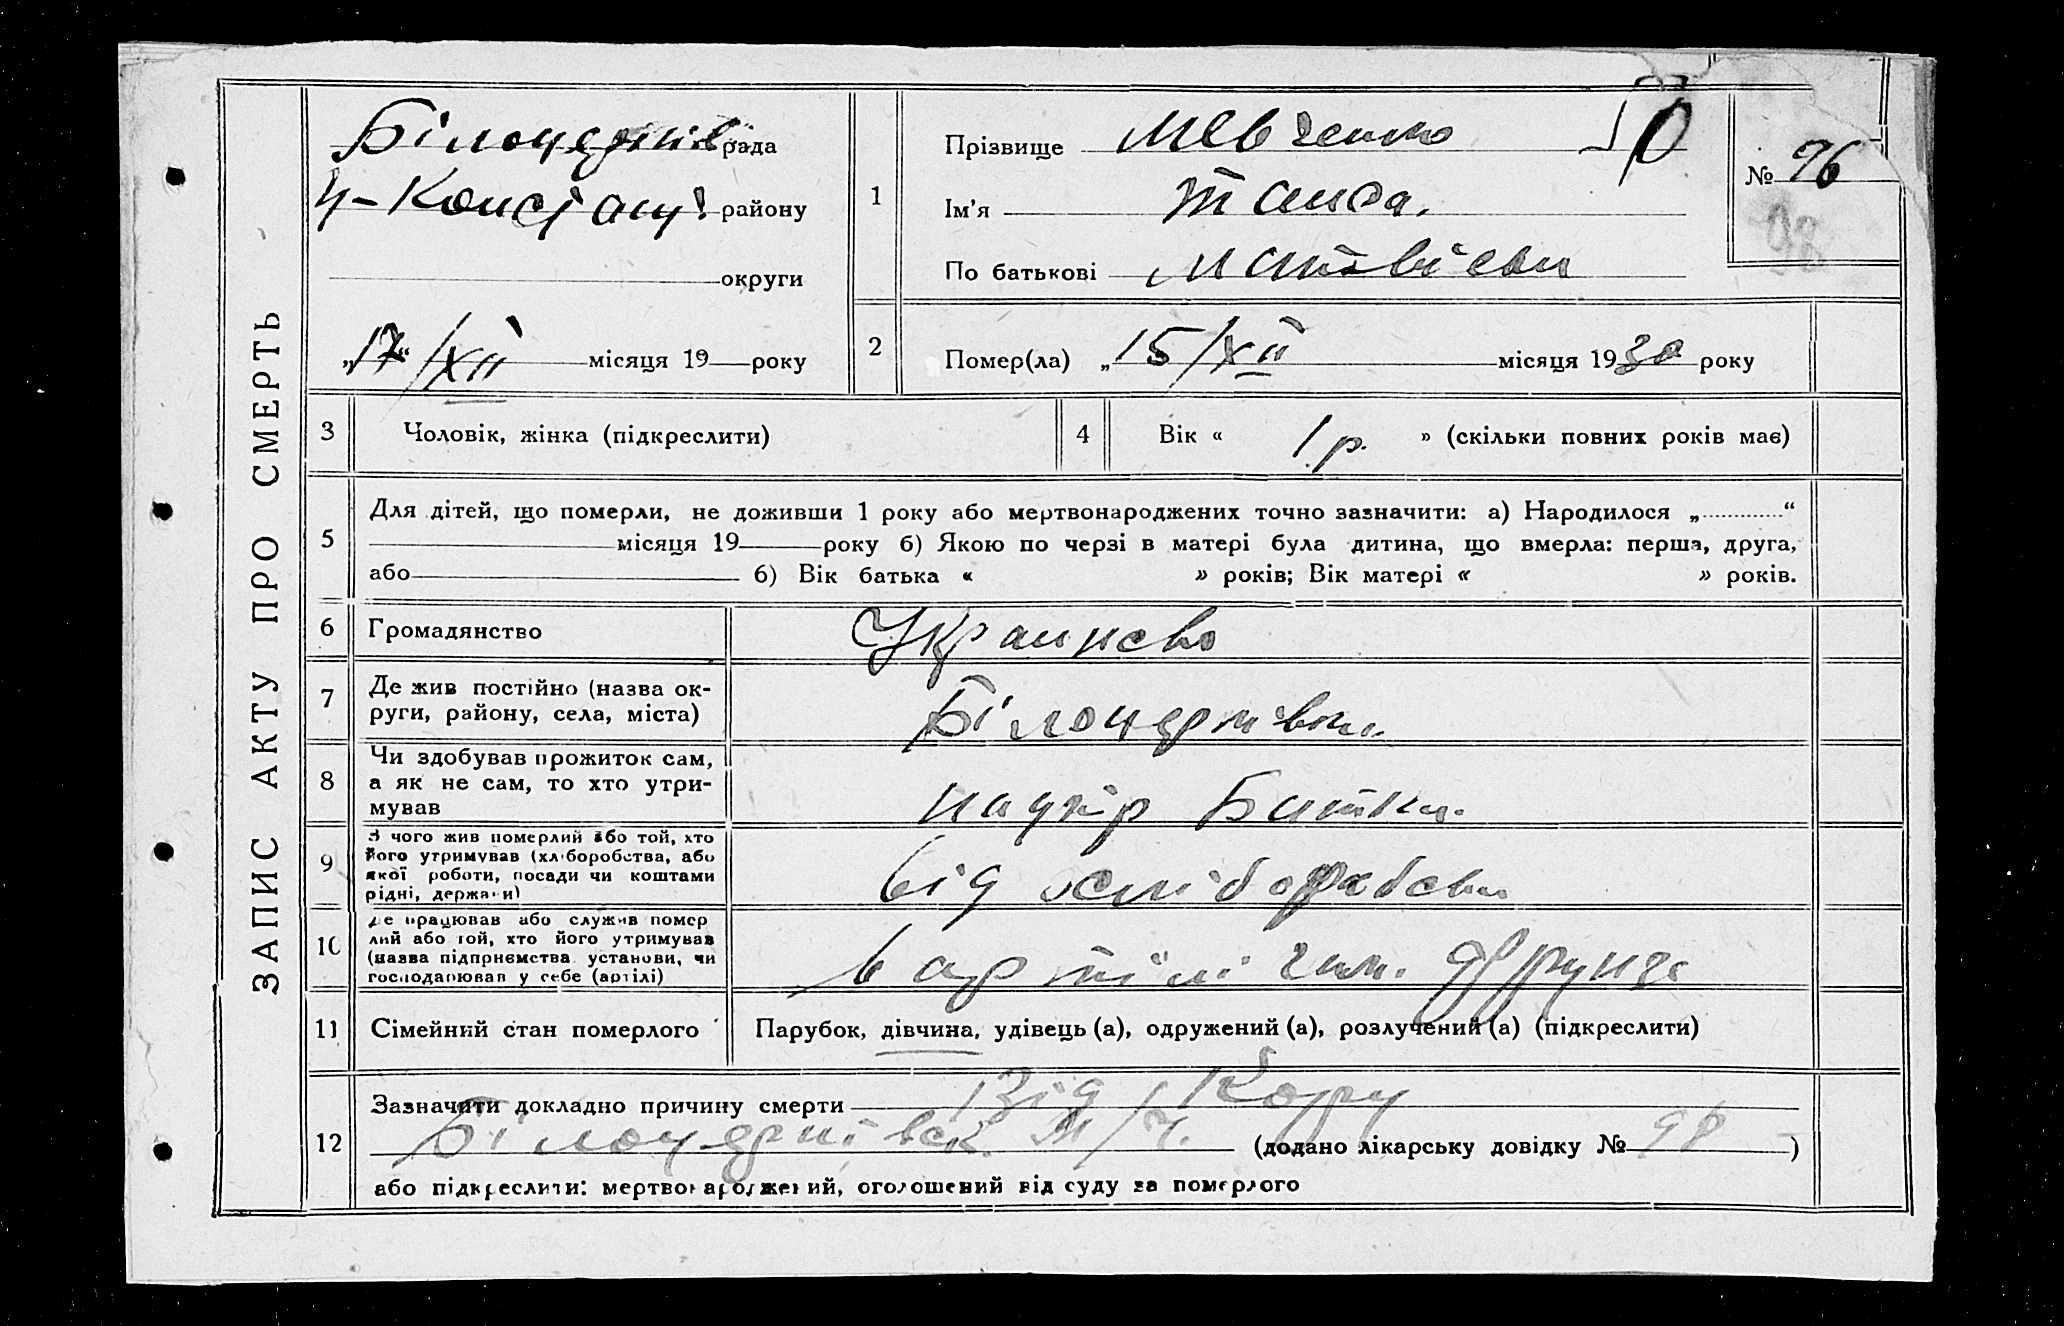 ЗАПИС АКТУ ПРО СМЕРТЬ
Білоцерків рада
району
округи
„17“ /XII місяця 19 року
1
Прізвище Шевченко
Ім'я Таися.
По батькові Матвієвн
№ 96
98
2
Помер(ла) „ 15/XII місяця 1930 року
3 Чоловік, жінка (підкреслити)
4 Вік « 1 р. » (скільки повних років має)
5 Для дітей, що померли, не доживши 1 року або мертвонароджених точно зазначити: а) Народилося „ “
місяця 19 року б) Якою по черзі в матері була дитина, що вмерла: перша, друга,
або б) Вік батька « » років; Вік матері « » років.
6 Громадянство
7 Де жив постійно (назва ок-
руги, району, села, міста)
8 Чи здобував прожиток сам,
а як не сам, то хто утри-
мував
9 З чого жив померлий або той, хто
його утримував (хліборобства, або
якої роботи, посади чи коштами
рідні, держави)
від
10 Де працював або служив помер
лий або той, хто його утримував
(назва підприємства установи, чи
господарював у себе (артілі)
в артілі Фрунзе
11 Сімейний стан померлого Парубок, дівчина, удівець (а), одружений (а), розлучений (а) (підкреслити)
12 Зазначити докладно причину смерти Від Кору
М/П. (додано лікарську довідку № 98 )
або підкреслити: мертвонароджений, оголошений від суду за померлого